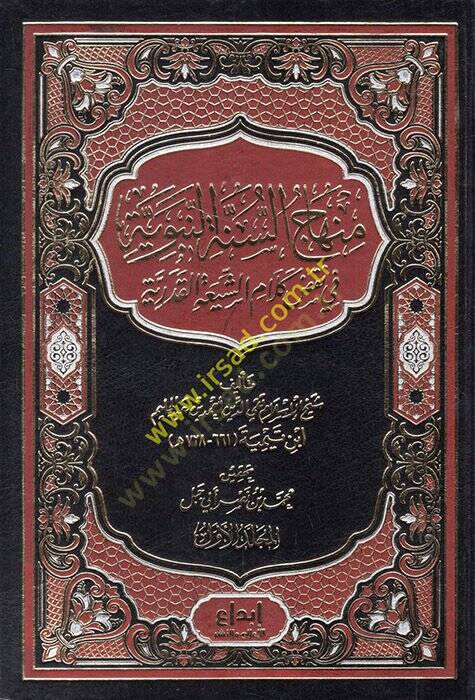 منهاج السنة النبوية
في نقض كلام الشيعة القدرية
تأليف
شيخ الإسلام تقي الدين أحمد بن عبد الحليم
ابن تيمية (٦٦١-٧٢٨هـ)
تحقيق
محمد بن نصر أبي جبل
المجلد الأول
إبداع
www.irsad.com.tr